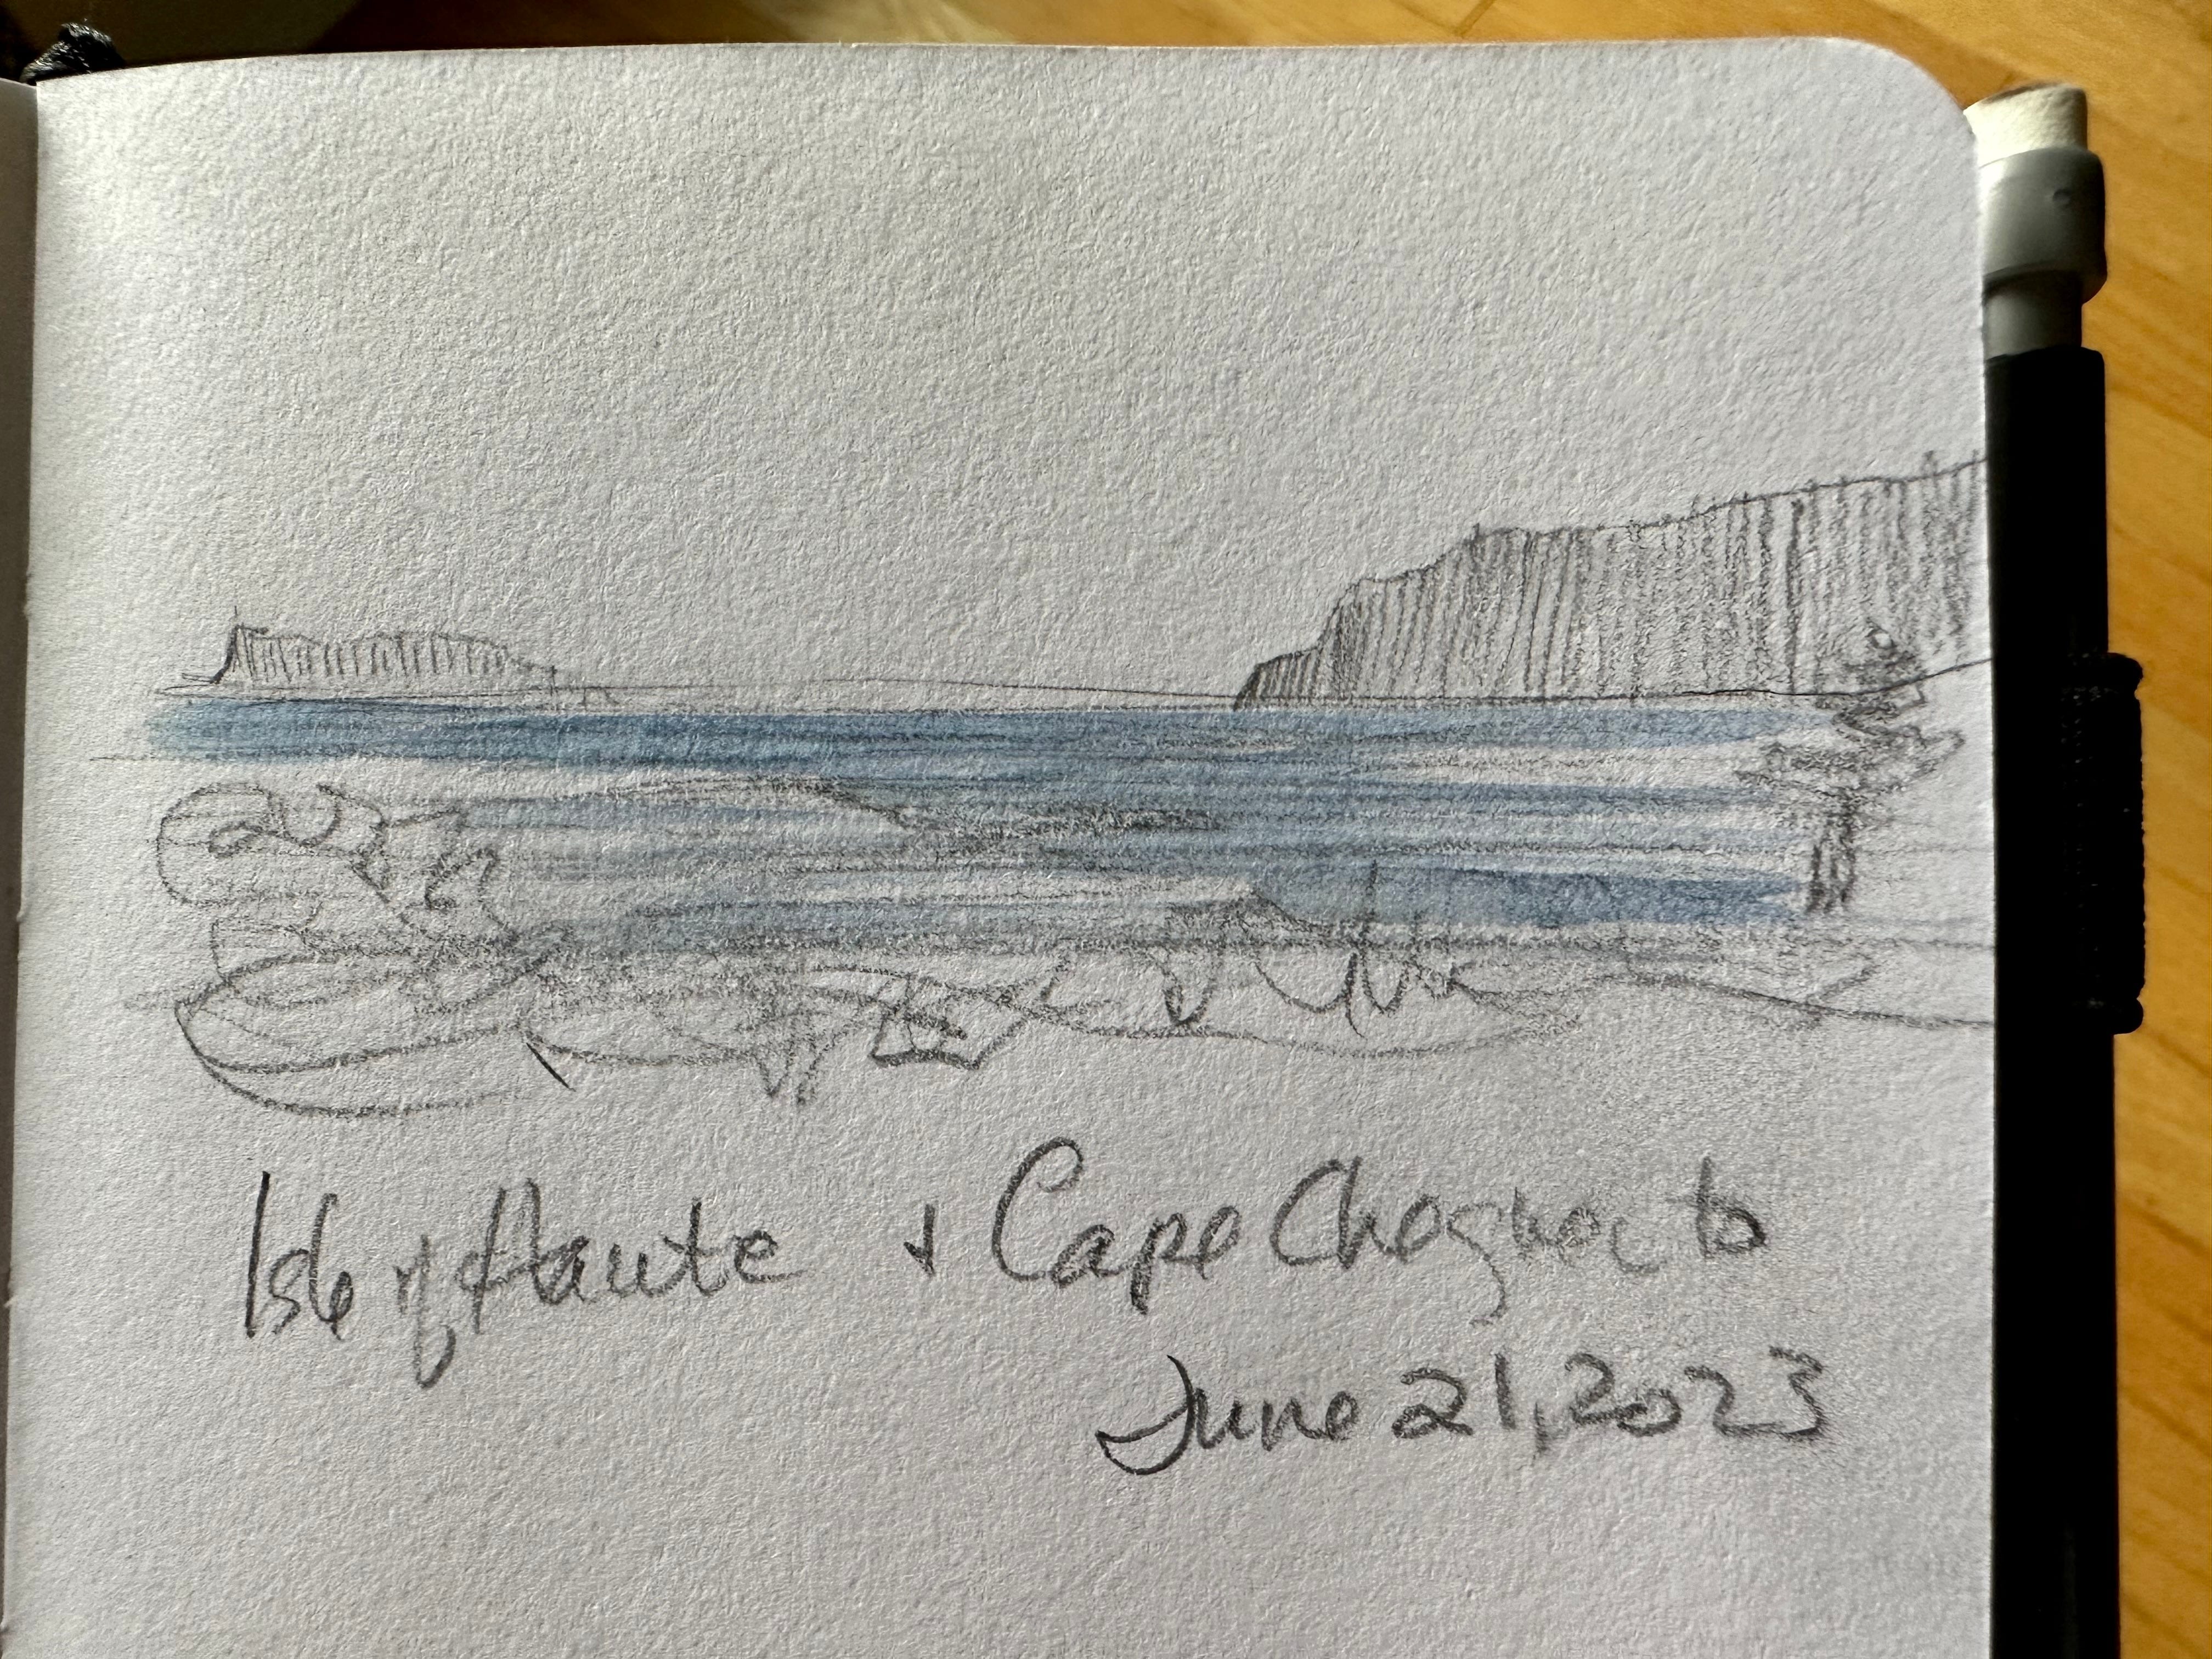 Isle of Haute + Cape Chegnecto
June 21, 2023